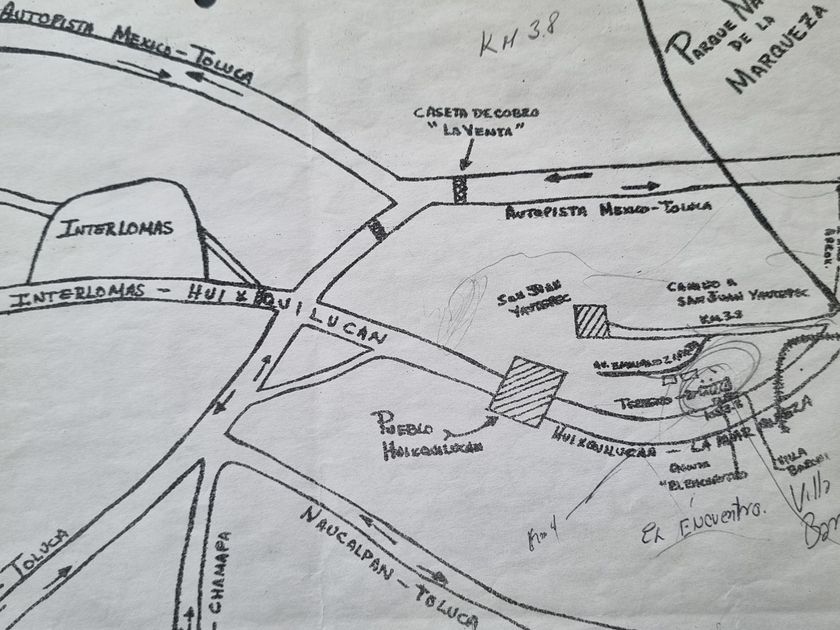 AUTOPISTA MEXICO-TOLUCA
KM 3.8
PARQUE
DE LA
MARQUEZA
CASETA DE COBRO
"LA VENTA"
AUTOPISTA MEXICO-TOLUCA
INTERLOMAS
INTERLOMAS - HUIXQUILUCAN
SAN JUAN
YAUTEPEC
CAMINO A
SAN JUAN YAUTEPEC
KM 3.8
AV. EMILIANO ZAPATA
TERRENO
PUEBLO
HUIXQUILUCAN
HUIXQUILUCAN - LA MARQUEZA
"EL ENCUENTRO"
VILLA
Villa
EL ENCUENTRO.
Km 4
NAUCALPAN - TOLUCA
- TOLUCA
- CHAMAPA